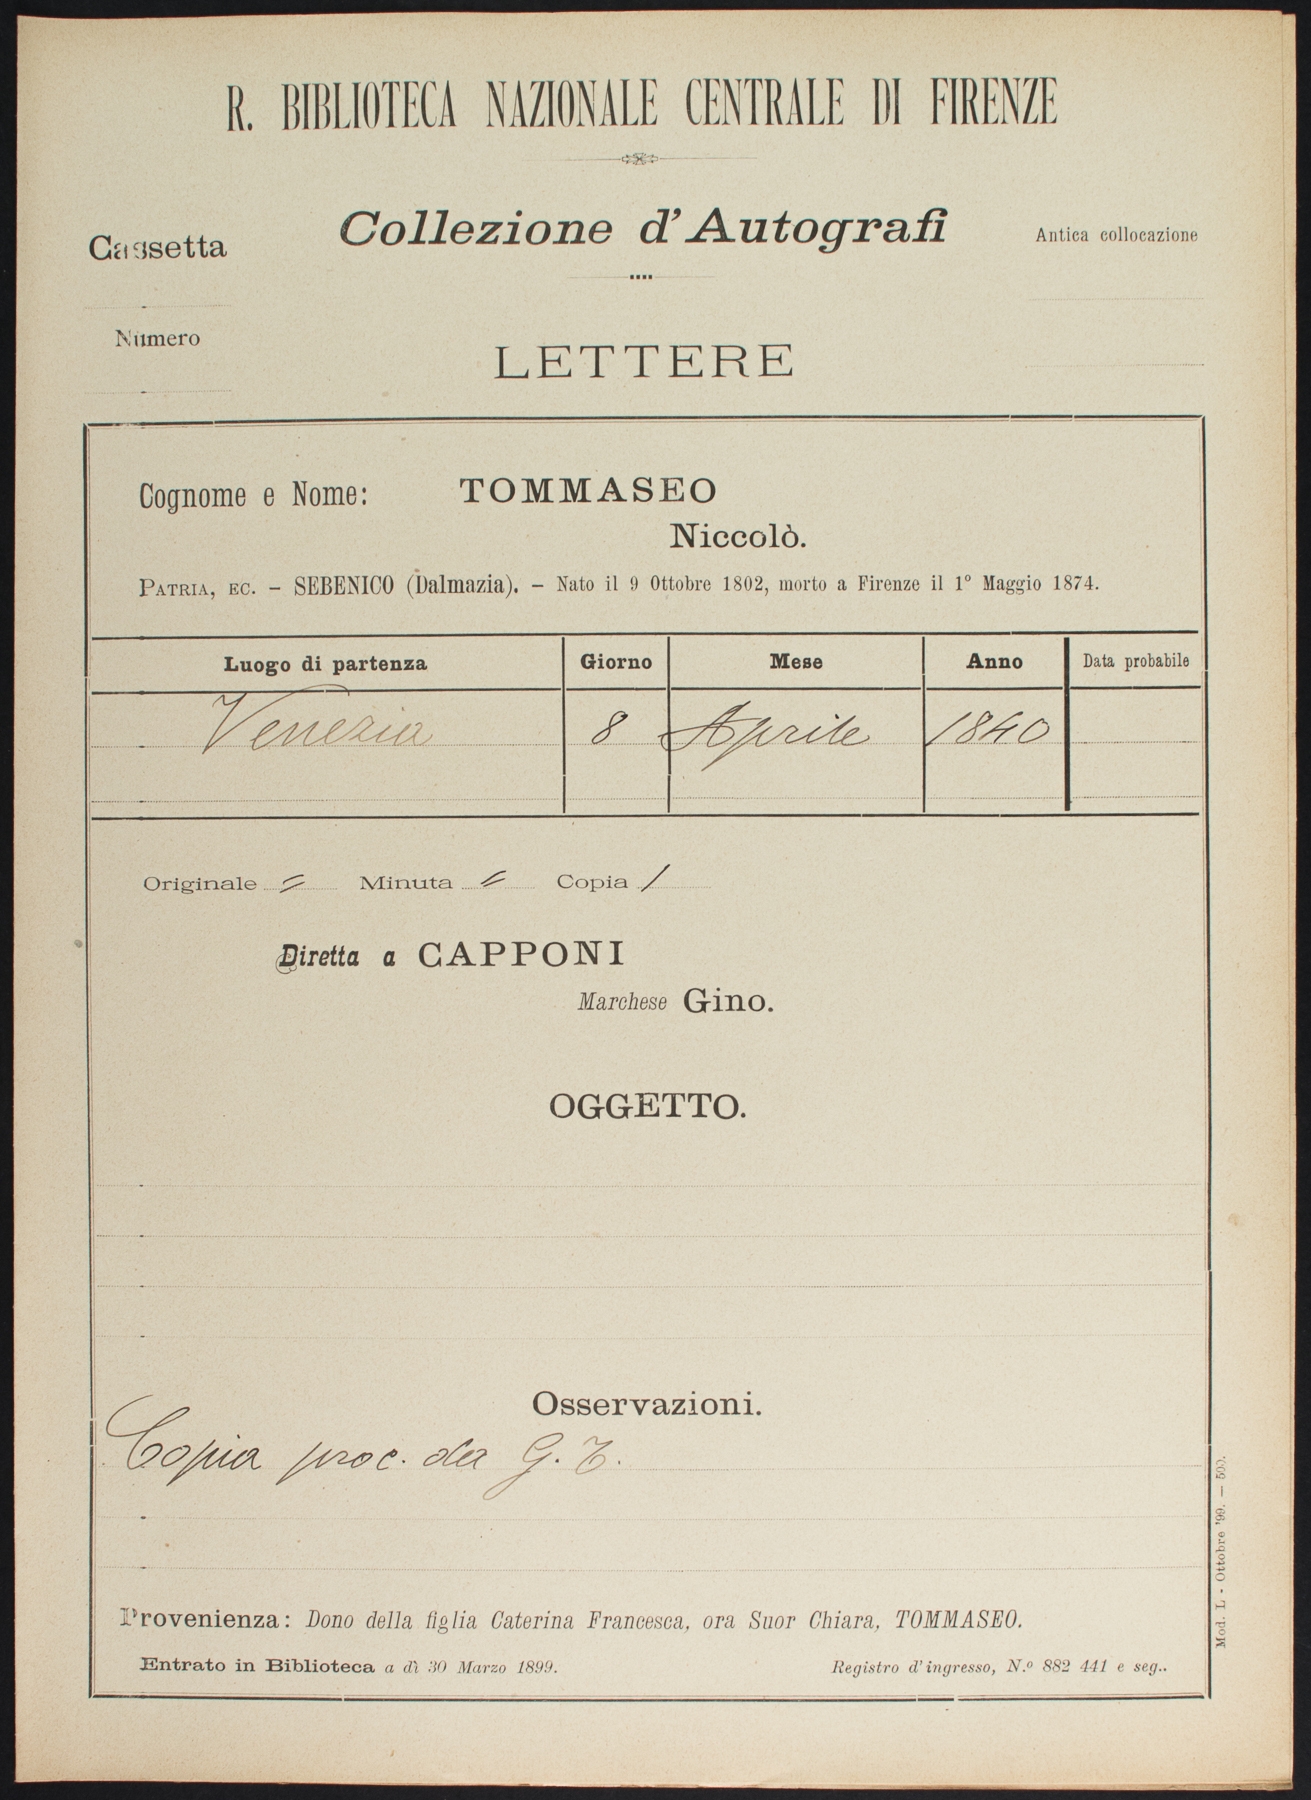 R. BIBLIOTECA NAZIONALE CENTRALE DI FIRENZE
Collezione d'Autografi
Cassetta
Antica collocazione
Numero
LETTERE
Cognome e Nome: TOMMASEO
Niccolò.
PATRIA, EC. – SEBENICO (Dalmazia). – Nato il 9 Ottobre 1802, morto a Firenze il 1° Maggio 1874.
Luogo di partenza Giorno Mese Anno Data probabile
Venezia 8 Aprile 1840
Originale = Minuta = Copia /
Diretta a CAPPONI
Marchese Gino.
OGGETTO.
Osservazioni.
Copia proc. da G. T.
Provenienza: Dono della figlia Caterina Francesca, ora Suor Chiara, TOMMASEO.
Entrato in Biblioteca a dì 30 Marzo 1899. Registro d'ingresso, N.º 882 441 e seg..
Mod. L - Ottobre '99. — 500.